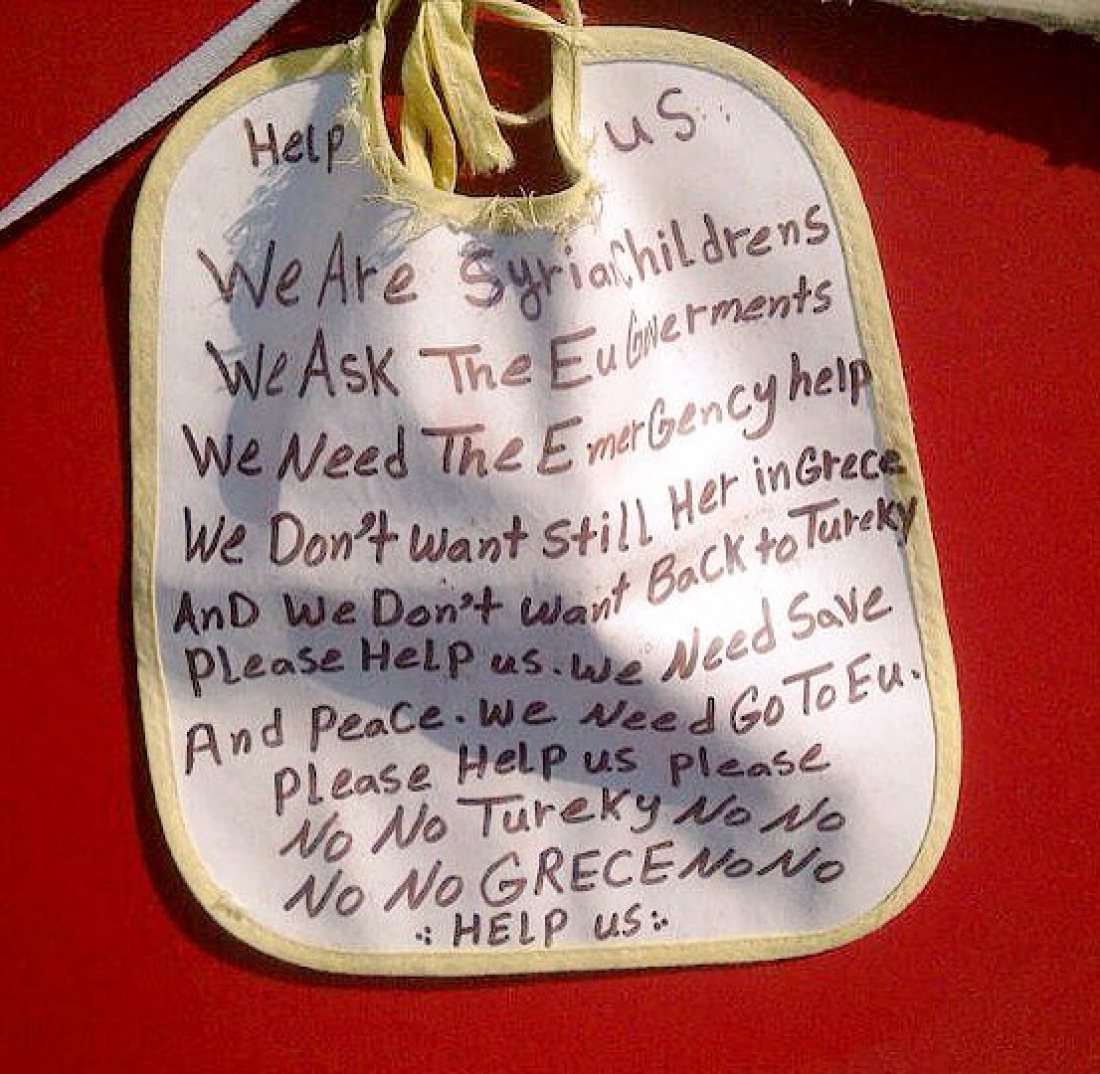 Help us
We Are Syria Childrens
We Ask The Eu Goverments
We Need The EmerGency help
We Don't want still Her in Grece
AnD we Don't want BacK to Tureky
please Help us. we Need Save
And peace. we Need Go To Eu.
please Help us please
No No Tureky No No
No No GRECE No No
HELP us